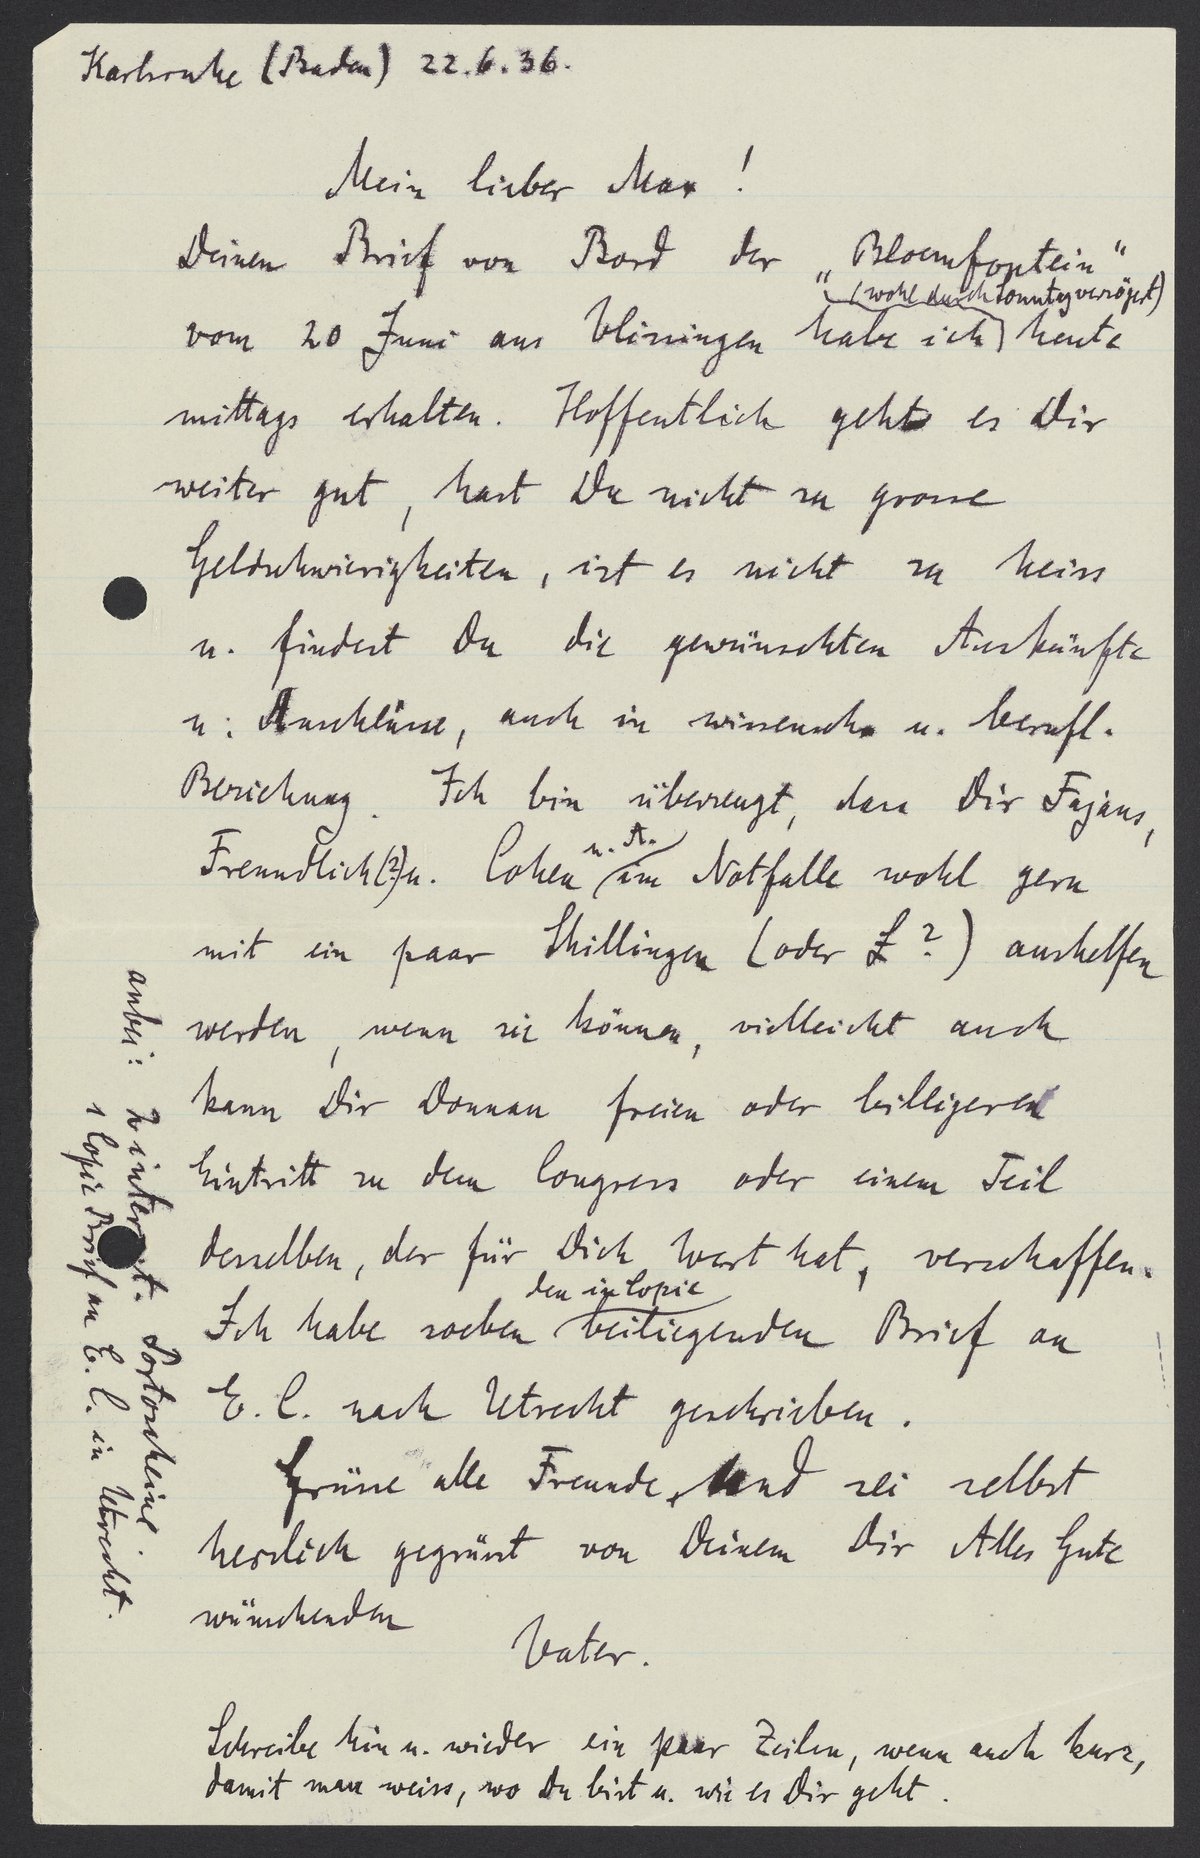 Karlsruhe (Baden) 22.6.36.
Mein lieber Max!
Deinen Brief von Bord der „Bloemfontein“
(wohl durch Sonntag verzögert)
vom 20 Juni aus Vlissingen habe ich heute
mittags erhalten. Hoffentlich geht es Dir
weiter gut, hast Du nicht zu grosse
Geldschwierigkeiten, ist es nicht zu heiss
u. findest Du die gewünschten Auskünfte
u. Anschlüsse, auch in wissensch. u. berufl.
Beziehung. Ich bin überzeugt, dass Dir Fajans,
Freundlich(?) u. Cohen u. A. im Notfalle wohl gern
mit ein paar Shillingen (oder £?) aushelfen
werden, wenn sie können, vielleicht auch
kann Dir Donnan freien oder billigeren
Eintritt zu dem Congress oder einem Teil
desselben, der für Dich Wert hat, verschaffen.
den in Copie
Ich habe soeben beiliegenden Brief an
E. C. nach Utrecht geschrieben.
Grüsse alle Freunde, und sei selbst
herzlich gegrüsst von Deinem Dir Alles Gute
wünschenden
Vater.
Schreibe hin u. wieder ein paar Zeilen, wenn auch kurz,
damit man weiss, wo Du bist u. wie es Dir geht.
anbei: 2 Portoscheine
1 Copie Brief an E. C. in Utrecht.